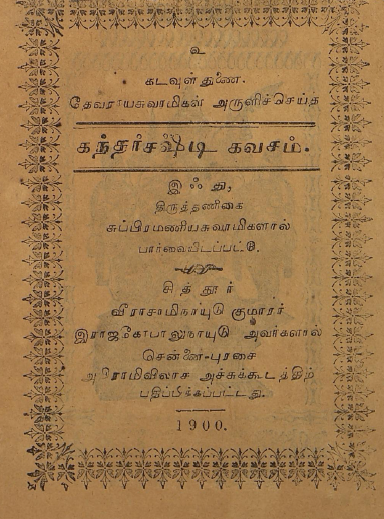 உ
கடவுள் துணை.
தேவராயசுவாமிகள் அருளிச்செய்த
கந்தர்சஷ்டி கவசம்.
இஃது,
திருத்தணிகை
சுப்பிரமணியசுவாமிகளால்
பார்வையிடப்பட்டு,
சித்தூர்
வீராசாமிநாயுடு குமாரர்
இராஜகோபாலுநாயுடு அவர்களால்
சென்னை-புரசை
அபிராமிவிலாச அச்சுக்கூடத்திற்
பதிப்பிக்கப்பட்டது.
1900.